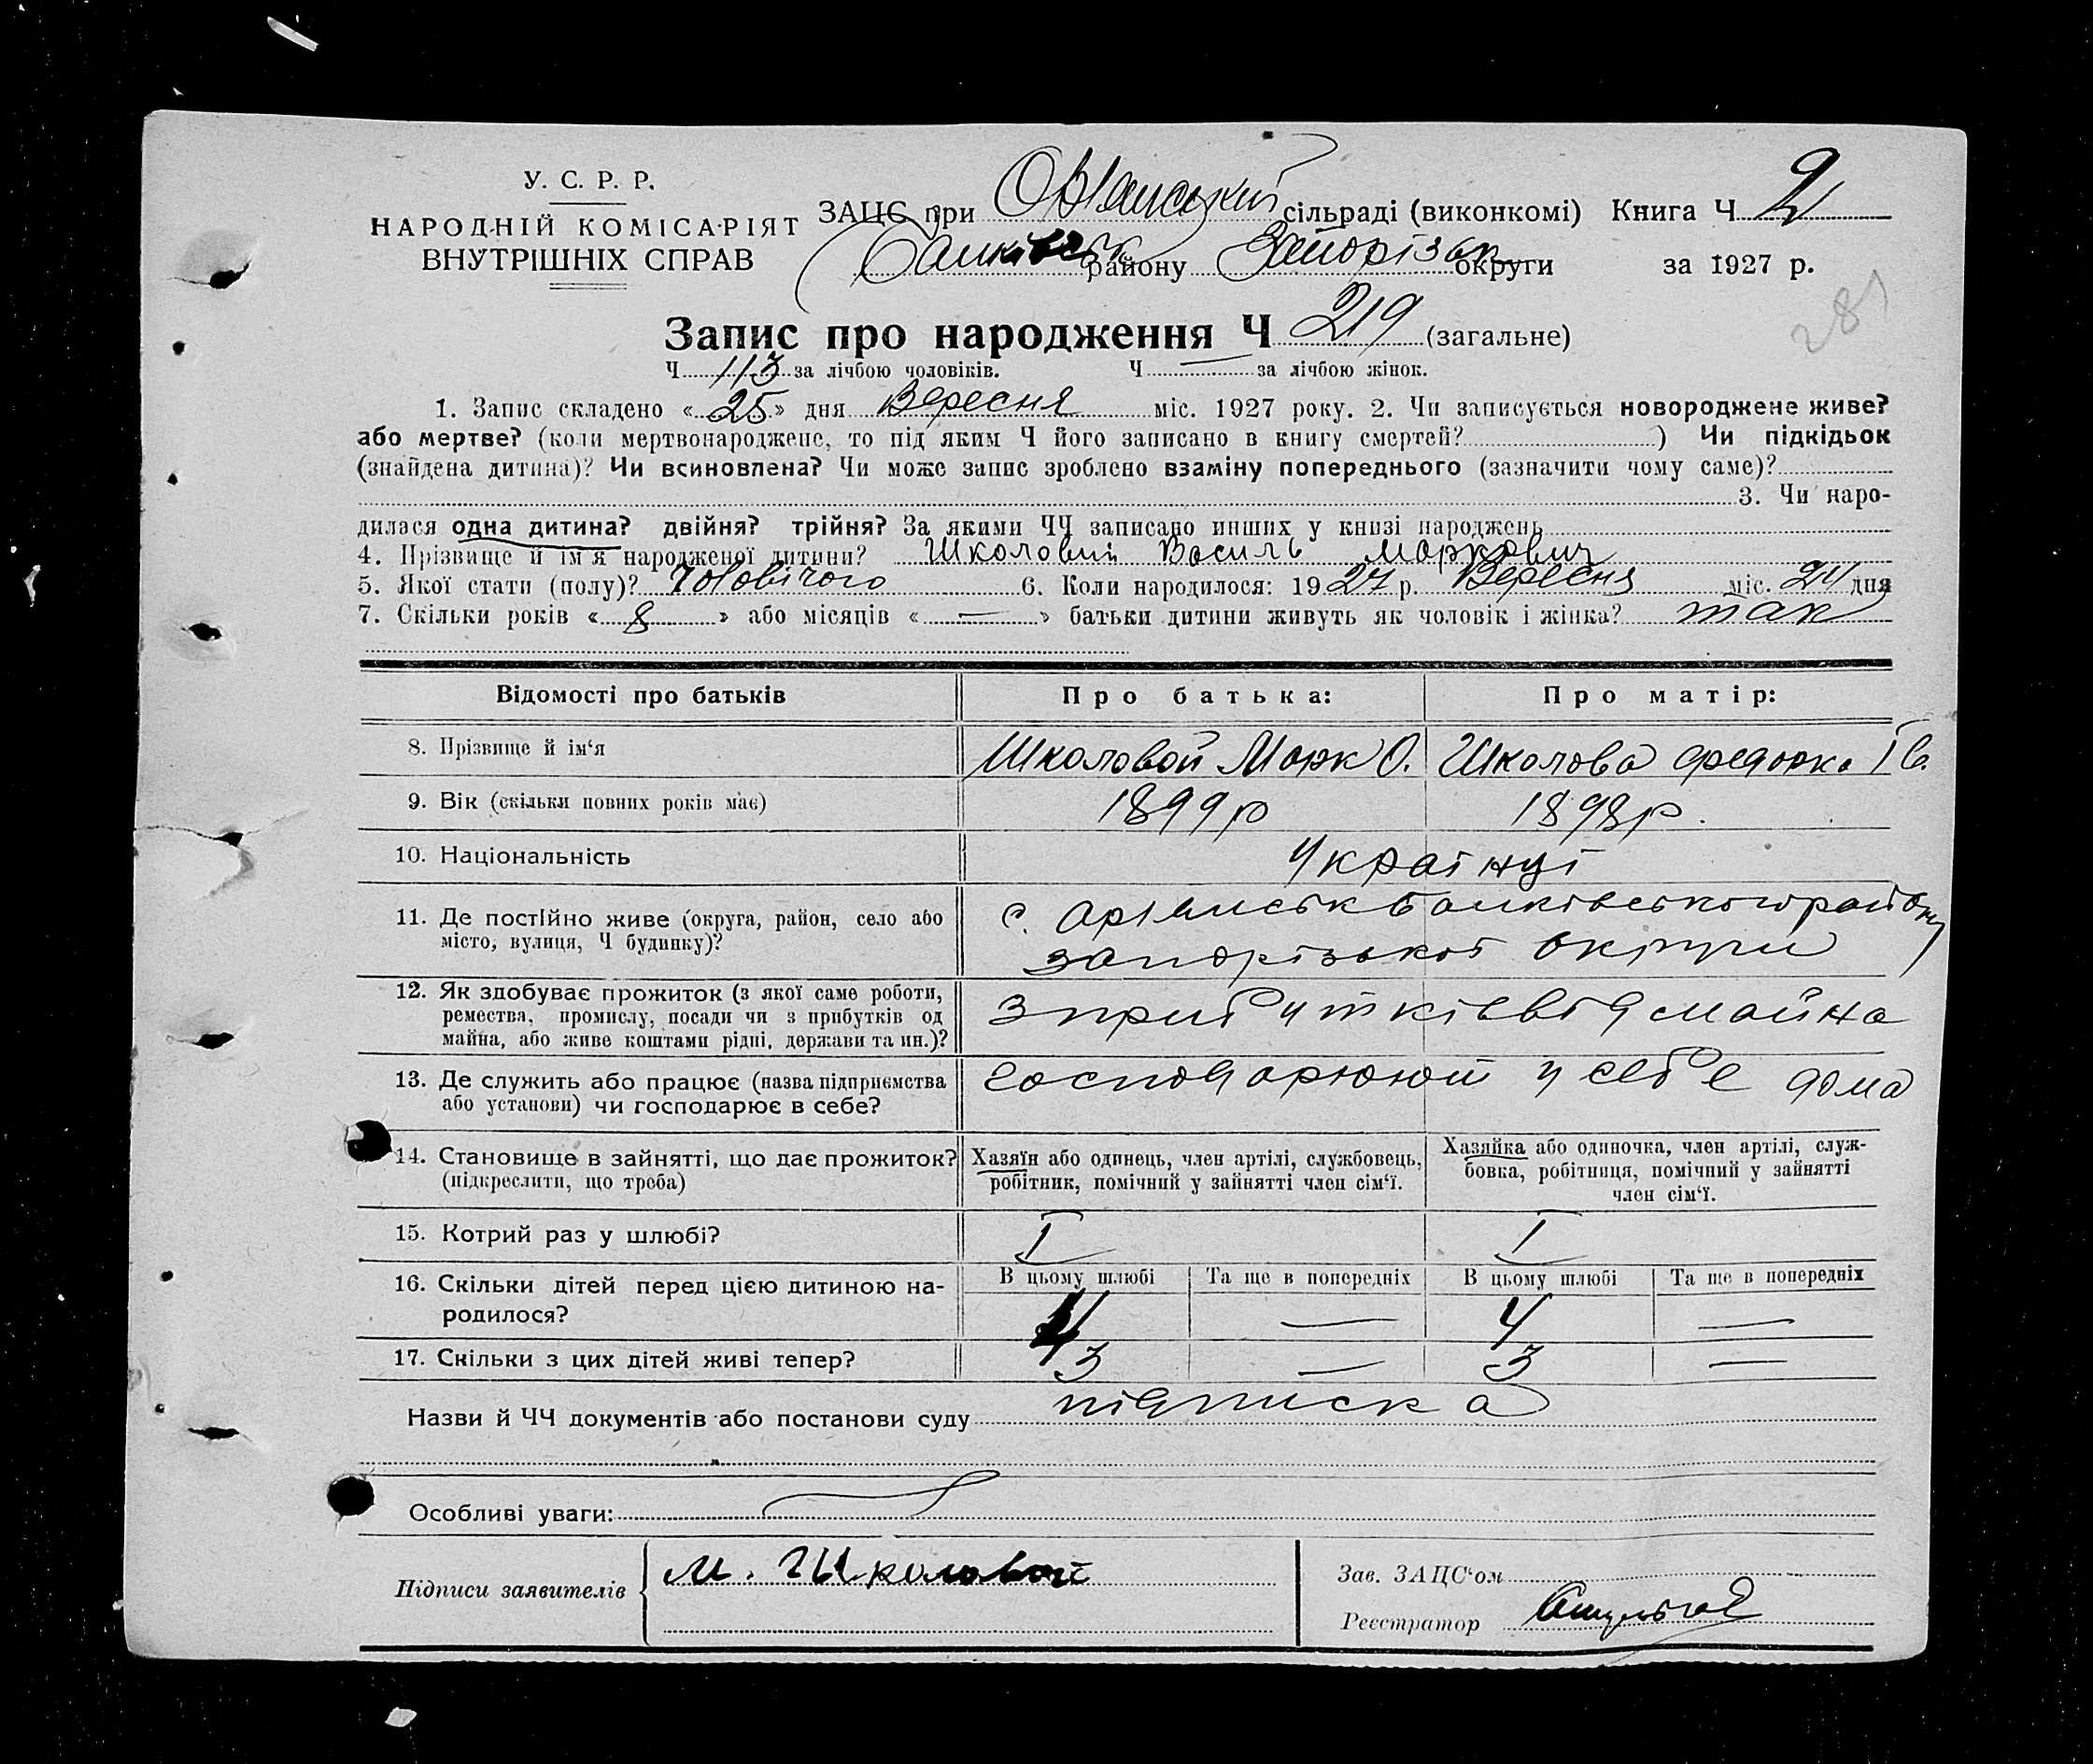 У. С. Р. Р.
НАРОДНІЙ КОМІСАРІЯТ
ВНУТРІШНІХ СПРАВ
ЗАЦС при сільраді (виконкомі) Книга Ч 2
району Запорізьк округи за 1927 р.
281
Запис про народження Ч 219 (загальне)
Ч 113 за лічбою чоловіків. Ч — за лічбою жінок.
1. Запис складено « 25 » дня Вересня міс. 1927 року. 2. Чи записується новороджене живе?
або мертве? (коли мертвонароджене, то під яким Ч його записано в книгу смертей? ) Чи підкідьок
(знайдена дитина)? Чи всиновлена? Чи може запис зроблено взаміну попереднього (зазначити чому саме)?
3. Чи наро-
дилася одна дитина? двійня? трійня? За якими ЧЧ записано инших у книзі народжень
4. Прізвище й ім'я народженої дитини? Школовий Василь Маркович
5. Якої стати (полу)? Чоловічого 6. Коли народилося: 1927 р. Вересня міс. 24 дня
7. Скільки років « 8 » або місяців « — » батьки дитини живуть як чоловік і жінка? так
Відомості про батьків Про батька: Про матір:
8. Прізвище й ім'я Школовой Марк О. Школова Федорка Ів.
9. Вік (скільки повних років має) 1899р 1898р.
10. Національність Українці
11. Де постійно живе (округа, район, село або
місто, вулиця, Ч будинку)?
с. району
запорізької округи
12. Як здобуває прожиток (з якої саме роботи,
ремества, промислу, посади чи з прибутків од
майна, або живе коштами рідні, держави та ин.)?
З прибутків від майна
13. Де служить або працює (назва підприємства
або установи) чи господарює в себе?
господарюют у себе дома
14. Становище в зайнятті, що дає прожиток?
(підкреслити, що треба)
Хазяїн або одинець, член артілі, службовець,
робітник, помічний у зайнятті член сім'ї.
Хазяйка або одиночка, член артілі, служ-
бовка, робітниця, помічний у зайнятті
член сім'ї.
15. Котрий раз у шлюбі? I I
16. Скільки дітей перед цією дитиною на-
родилося?
В цьому шлюбі Та ще в попередніх В цьому шлюбі Та ще в попередніх
4 — 4 —
17. Скільки з цих дітей живі тепер? 3 — 3 —
Назви й ЧЧ документів або постанови суду підписка
Особливі уваги:
Підписи заявителів М. Школовой
Зав. ЗАЦС'ом
Реєстратор